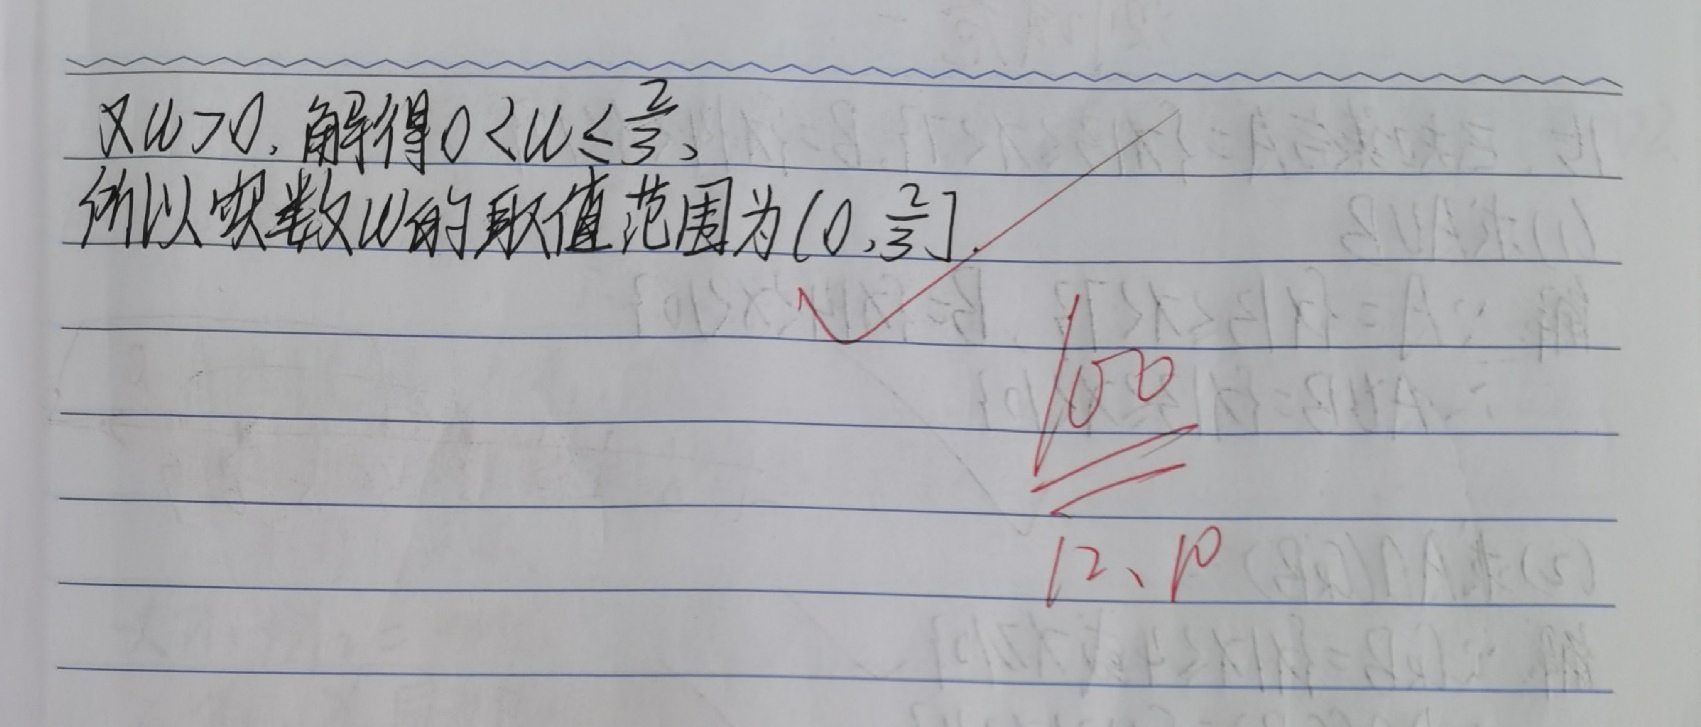 又w>0,解得0<w≤2/3、
所以实数w的取值范围为(0,2/3].
100
12、10